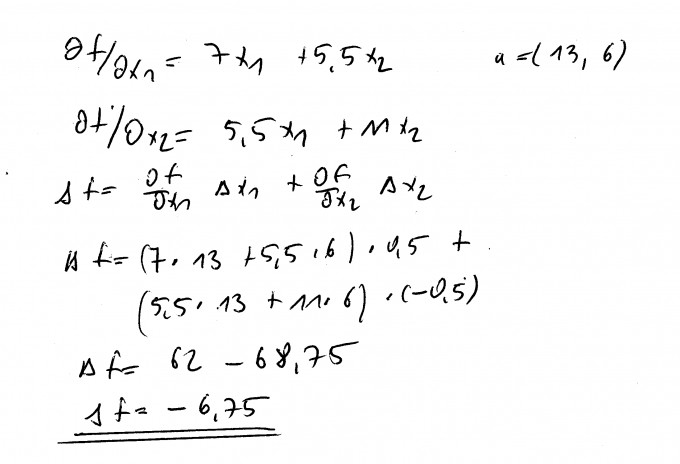 ∂f/∂x1 = 7x1 + 5,5x2 a = (13, 6)
∂f/∂x2 = 5,5x1 + 11x2
Δf = ∂f/∂x1 Δx1 + ∂f/∂x2 Δx2
Δf = (7 · 13 + 5,5 · 6) · 0,5 +
(5,5 · 13 + 11 · 6) · (-0,5)
Δf = 62 - 68,75
Δf = - 6,75